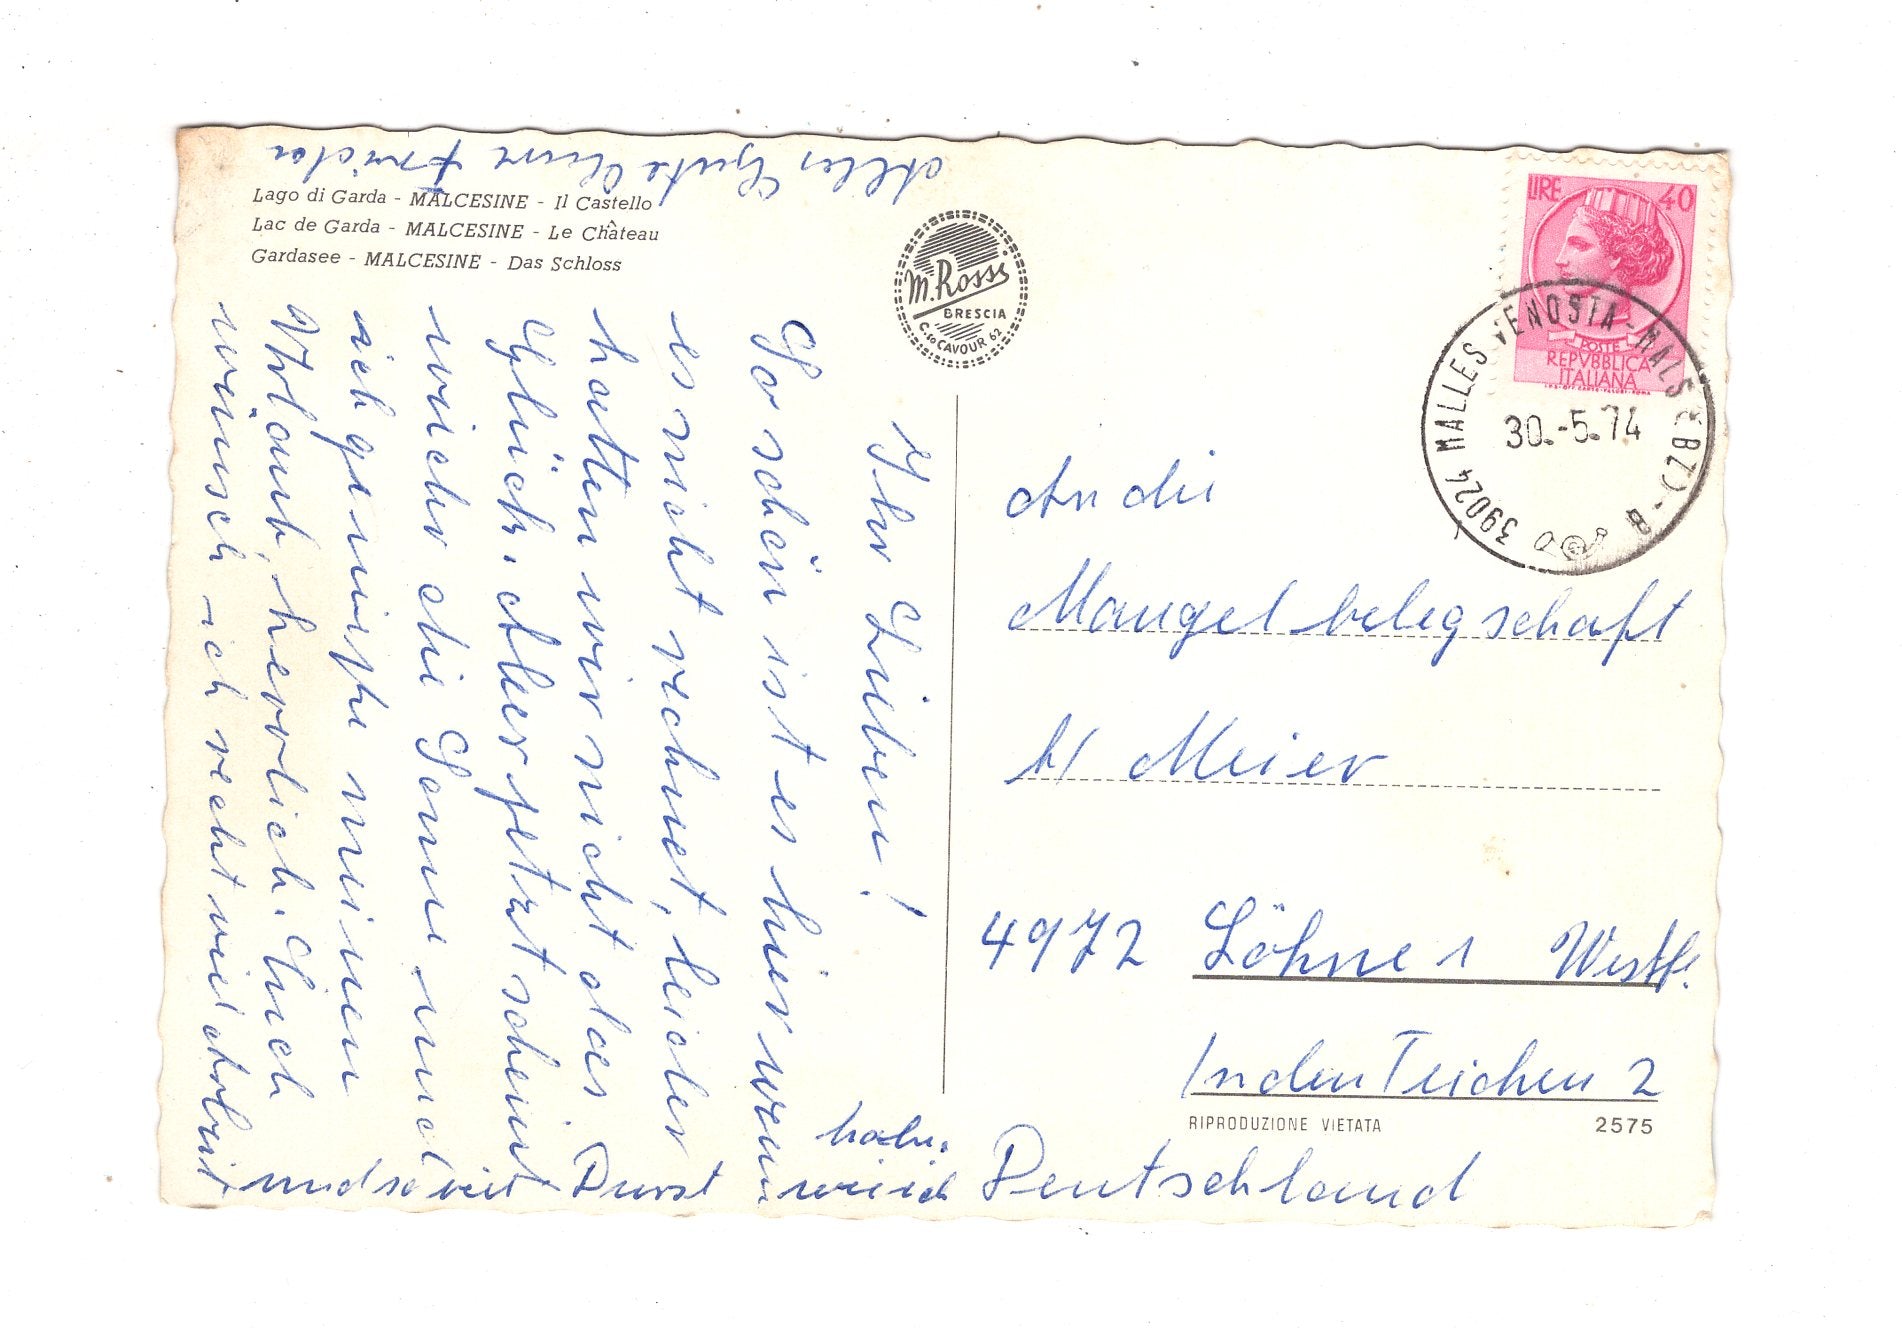 Lago di Garda - MALCESINE - Il Castello
Lac de Garda - MALCESINE - Le Château
Gardasee - MALCESINE - Das Schloss
M. Rossi
BRESCIA
C.so CAVOUR 62
LIRE 40
POSTE
REPVBBLICA
ITALIANA
39024 MALLES VENOSTA - MALS (BZ) - B
30.-5.74
Ihr Lieben!
So schön ist es hier wenn
es nicht rechnet, leider
hatten wir nicht das
Glück. Aber jetzt scheint
wieder die Sonne und
ich genieße meinen
Urlaub, herrlich. Euch
wünsch ich recht viel Arbeit
und so viel Durst wie ich
habe.
Alles Gute Eure Frieda
An die
Mangelbelegschaft
b/ Meier
4972 Löhne 1 Westf.
In den Teichen 2
RIPRODUZIONE VIETATA 2575
Deutschland